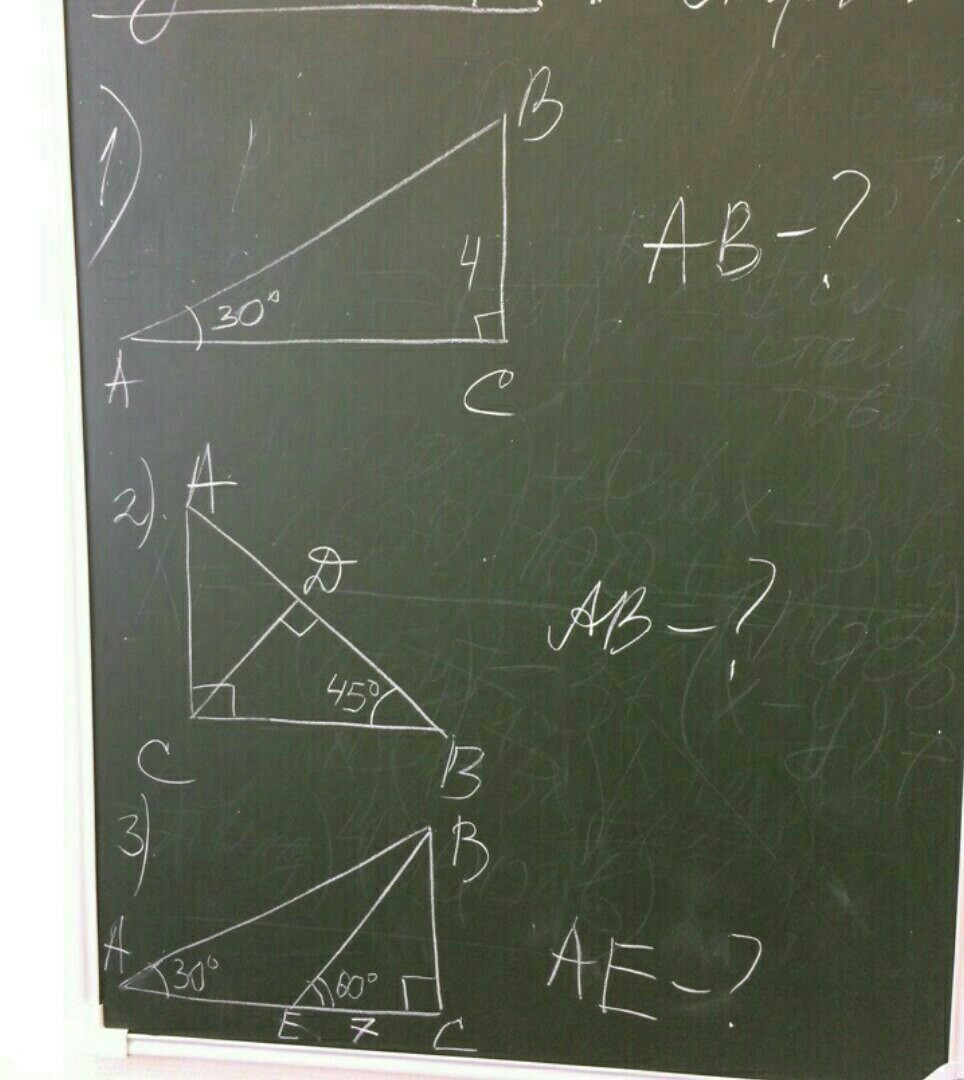 1)
B
4
AB-?
30°
A
C
2)
A
D
AB-?
45°
C
B
3)
B
A
30°
60°
AE-?
E
7
C